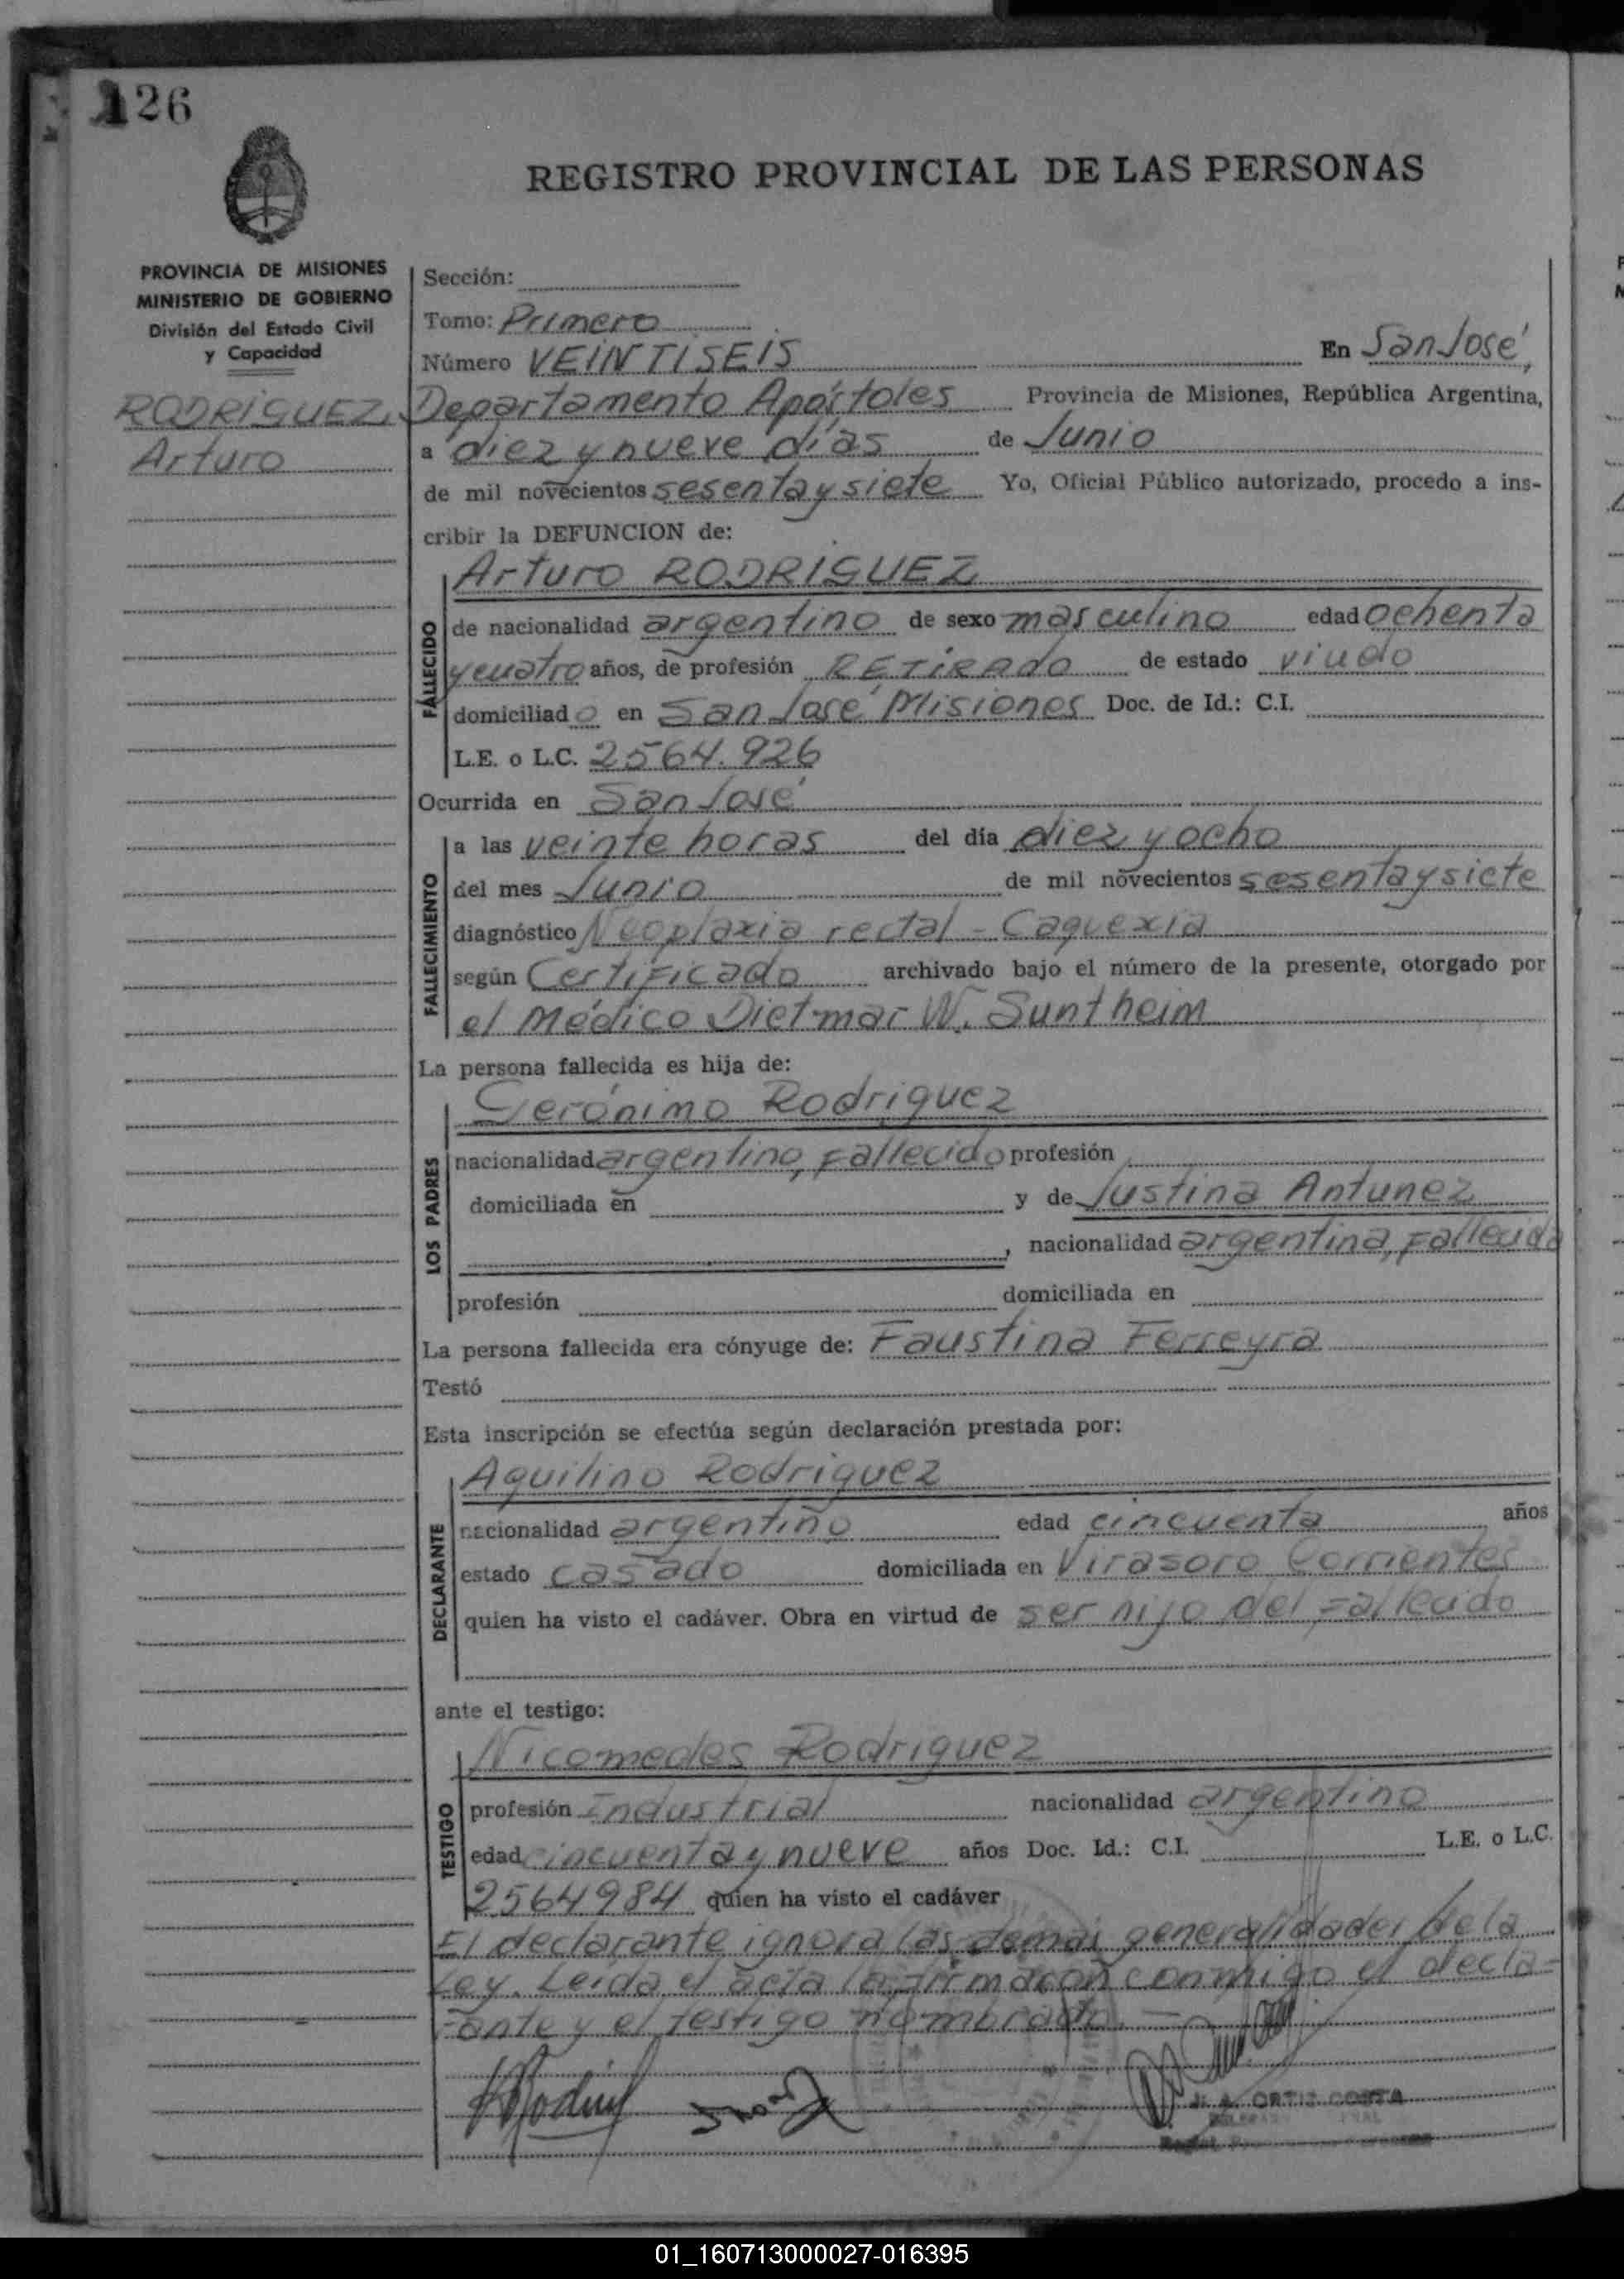 126
REGISTRO PROVINCIAL DE LAS PERSONAS
PROVINCIA DE MISIONES
MINISTERIO DE GOBIERNO
División del Estado Civil
y Capacidad
RODRIGUEZ,
Arturo
Sección:
Tomo: Primero
Número VEINTISEIS En San José,
Departamento Apóstoles Provincia de Misiones, República Argentina,
a diez y nueve días de Junio
de mil novecientos sesenta y siete Yo, Oficial Público autorizado, procedo a ins-
cribir la DEFUNCION de:
Arturo RODRIGUEZ
FALLECIDO
de nacionalidad argentino de sexo masculino edad ochenta
y cuatro años, de profesión RETIRADO de estado viudo
domiciliado en San José Misiones Doc. de Id.: C.I.
L.E. o L.C. 2564.926
Ocurrida en San José
FALLECIMIENTO
a las veinte horas del día diez y ocho
del mes Junio de mil novecientos sesenta y siete
diagnóstico Neoplaxia rectal - Caquexia
según Certificado archivado bajo el número de la presente, otorgado por
el Médico Dietmar W. Suntheim
La persona fallecida es hija de:
Gerónimo Rodriguez
LOS PADRES
nacionalidad argentino, Fallecido profesión
domiciliada en y de Justina Antunez
, nacionalidad argentina, Fallecida
profesión domiciliada en
La persona fallecida era cónyuge de: Faustina Ferreyra
Testó
Esta inscripción se efectúa según declaración prestada por:
Aquilino Rodriguez
DECLARANTE
nacionalidad argentino edad cincuenta años
estado casado domiciliada en Virasoro Corrientes
quien ha visto el cadáver. Obra en virtud de ser hijo del Fallecido
ante el testigo:
Nicomedes Rodriguez
TESTIGO
profesión Industrial nacionalidad argentino
edad cincuenta y nueve años Doc. Id.: C.I. L.E. o L.C.
2564984 quien ha visto el cadáver
El declarante ignora las demás generalidades de la
Ley. Leída el acta la firmaron conmigo el decla-
rante y el testigo nombrado.-
J. A. ORTIZ COSTA
01_160713000027-016395